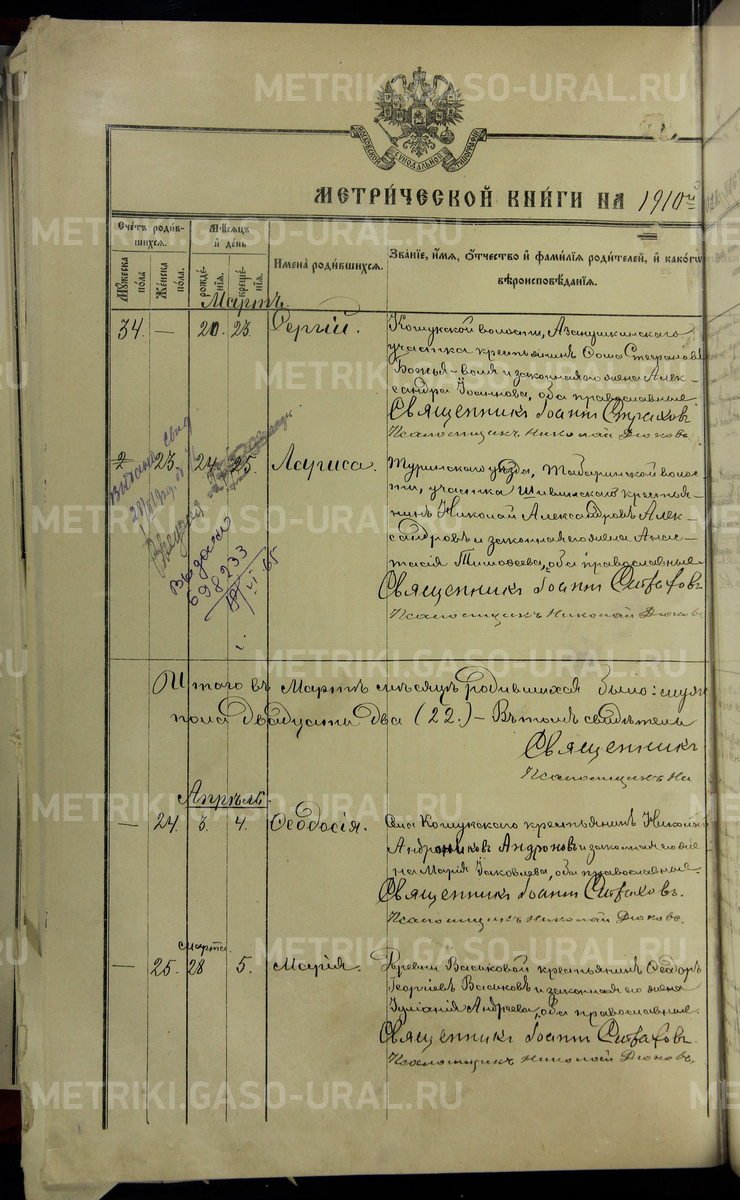 METRIKI.GASO-URAL.RU
МОСКОВСКОЙ СѴНОДАЛЬНОЙ ТИПОГРАФІИ
МЕТРИ́ЧЕСКОЙ КНИ́ГИ НА 1910й
Счетъ роди́вшихся.
Мѣсяцъ и҆ де́нь
И҆мена̀ роди́вшихся.
Зва́нїе, и҆́мя, ѻ҆́тчество и҆ фами́лїя роди́телей, и҆ како́гѡ вѣроисповѣ́данїя.
Мꙋ́жеска по́ла
Же́нска по́ла.
рожде́нїя.
креще́нїя.
Мартъ.
34. — 20. 23. Сергій.
Кошукской волости, Азанушкинскаго
участка крестьянинъ Сома Стефановъ
Божья-воля и законная его жена Алек-
сандра Іоаннова, оба православные.
Священникъ Іоаннъ Страховъ
Псаломщикъ Николай Дюковъ.
2 23. 24. 25. Лариса.
Туринскаго уѣзда, Табаринской волос
ти, участка крестья-
нинъ Николай Александровъ Алек-
сандровъ и законная его жена Анас-
тасія Тимоѳеева, оба православные.
Священникъ Іоаннъ Страховъ
Псаломщикъ Николай Дюковъ
Выдано свид
Выдано
698233
65
Итого въ Мартѣ мѣсяцѣ родившихся было: муж
пола двадцать два (22.) – Въ томъ свидѣтели
Священникъ
Псаломщикъ Ни
Апрѣль.
— 24. 3. 4. Ѳеодосія.
Села Кошукскаго крестьянинъ Никола
Андрониковъ Андроновъ и законная его же
на Марія Іаковлева, оба православные.
Священникъ Іоаннъ Страховъ.
Псаломщикъ Николай Дюковъ.
Марта.
— 25. 28 5. Марія.
Деревни Васьковой крестьянинъ Ѳеодоръ
Георгіевъ Васьковъ и законная его жена
Іуліанія Андреева, оба православные.
Священникъ Іоаннъ Страховъ.
Псаломщикъ Николай Дюковъ.